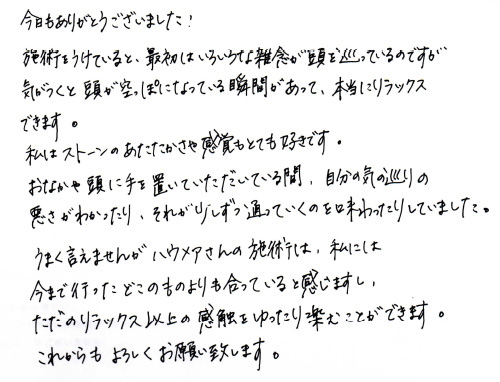 今日もありがとうございました！
施術をうけていると、最初はいろいろな雑念が頭を巡っているのですが
気がつくと頭が空っぽになっている瞬間があって、本当にリラックス
できます。
私はストーンのあたたかさや感覚もとても好きです。
おなかや頭に手を置いていただいている間、自分の気の巡りの
悪さがわかったり、それが少しずつ通っていくのを味わったりしていました。
うまく言えませんがハウメアさんの施術は、私には
今まで行ったどこのものよりも合っていると感じますし、
ただのリラックス以上の感触をゆったり楽むことができます。
これからもよろしくお願い致します。